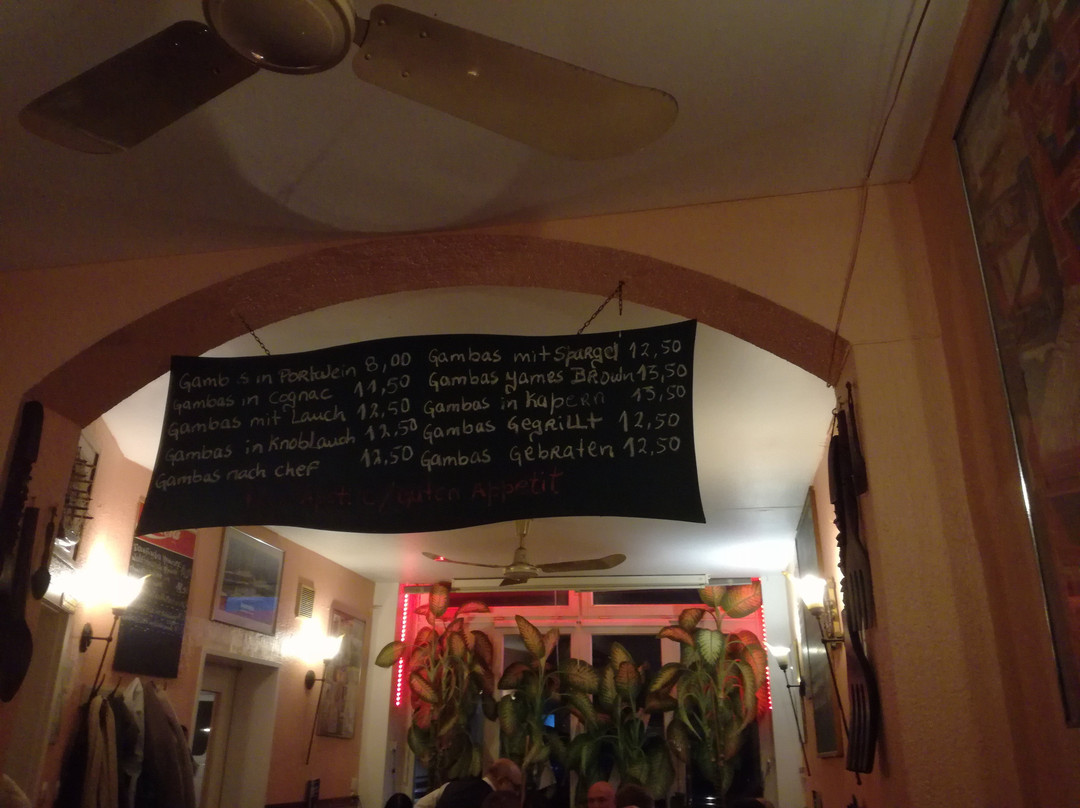 Gambas in Portwein 8,00
Gambas in Cognac 11,50
Gambas mit Lauch 12,50
Gambas in Knoblauch 12,50
Gambas nach chef 12,50
Gambas mit Spargel 12,50
Gambas yames BROWN 13,50
Gambas in Kapern 13,50
Gambas GegRiLLt 12,50
Gambas GebRaten 12,50
Guten Appetit